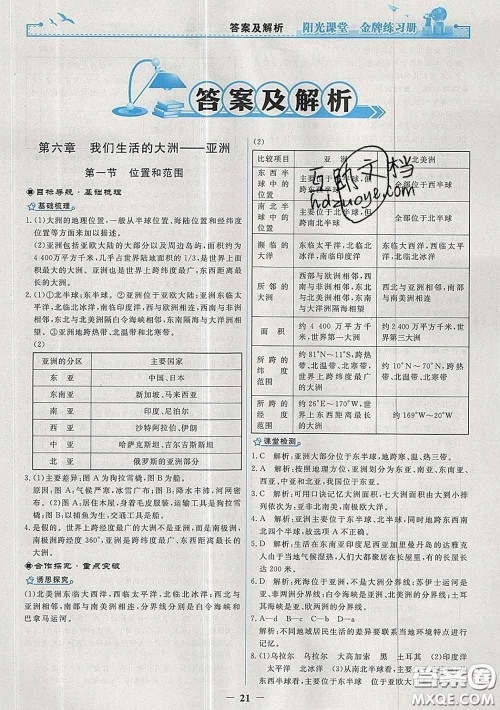 答案及解析
阳光课堂 金牌练习册
答案及解析
第六章 我们生活的大洲——亚洲
第一节 位置和范围
目标导航·基础梳理
基础梳理
1.(1)大洲的地理位置,一般从半球位置、海陆位置和经纬度
位置等方面来加以描述。
(2)亚洲包括亚欧大陆的大部分以及周边岛屿,面积约
4 400万平方千米,几乎占世界陆地面积的1/3,是世界上
面积最大的大洲。亚洲也是世界上跨纬度最广、东西距离
最长的大洲。
2.(1)①北半球;东半球。②亚洲位于亚欧大陆;亚洲东临太平
洋,北临北冰洋,南临印度洋,西与欧洲相连,西南与非洲相
接,东北与北美洲隔白令海峡相邻,东南隔海与大洋洲相
望。③亚洲地跨热带、北温带和北寒带。
(2)
亚洲的分区 主要国家
东 亚 中国、日本
东南亚 新加坡、马来西亚
南 亚 印度、尼泊尔
西 亚 沙特阿拉伯、伊朗
中 亚 哈萨克斯坦、吉尔吉斯斯坦
北 亚 俄罗斯的亚洲部分
3.(1)主要差异:图A为狗拉雪橇,图B为船。
原因:图A,气候严寒,冰雪广布;图B,降水丰沛,河湖广布。
(2)图A:居住木屋,身着毛皮服装,运输工具为狗拉雪橇;
图B:以船为生,交通工具是船。
4.是假的。世界上跨经度最广的大洲不是亚洲,而是南极洲,
南极洲跨经度360°,亚洲是世界上东西距离最长的大洲。
合作探究·重点突破
诱思探究
1.(1)北美洲东临大西洋,西临太平洋,北临北冰洋;西北与亚
洲相邻,南与南美洲相连;分界线分别是白令海峡和
巴拿马运河。
(2)
比较项目 亚 洲 北美洲
东西半球中的位置 主要位于东半球 全部位于西半球
南北半球中的位置 全部位于北半球
濒临的大洋 东临太平洋,北临北冰洋,南临印度洋 东临大西洋,西临太平洋,北临北冰洋
所邻的大洲 西部与欧洲相邻,西南与非洲相邻,东南与大洋洲相邻,东北与北美洲相邻 西北与亚洲相邻,南与南美洲相连
面 积 约4 400万平方千米,世界第一大洲 约2 400万平方千米,世界第三大洲
所跨的纬度范围 约81°N～11°S,地跨寒、温、热带,是世界上跨纬度最广的大洲 约10°N～70°N,跨热带、北温带、北寒带
所跨的经度范围 约26°E～170°W,是世界上东西距离最长的大洲 约169°W～20°W
课堂检测
1.C 解析:亚洲大部分位于东半球,地跨寒、温、热三带。
2.A 解析:按照地理方位,亚洲划分为东亚、西亚、南亚、北
亚、中亚和东南亚。我国在东亚。
3.C 解析:可用口诀记忆大洲面积,七大洲大小不一般,亚非
北南美,南极欧大洋。
4.A 解析:亚洲主要位于东半球、北半球,同时地跨东西南
北四个半球,故本题选A。
5.A 解析:生活在东南亚印度尼西亚加里曼丹岛的达雅克
人由于当地气候湿热,人们大都家居在长屋里,长屋可长
达200米。
6.A 解析:死海位于亚洲,不是大洲界线;苏伊士运河是
亚、非两洲分界线;白令海峡是亚洲与北美洲的分界线;巴
拿马运河是南、北美两洲分界线。
7.D
解析:不同地域居民生活的差异要联系当地环境特点进行
记忆。
8.(1)乌拉尔 乌拉尔 大高加索 黑 土耳其 (2)印度洋
太平洋 北冰洋 (3)从南北半球看,主要位于
21